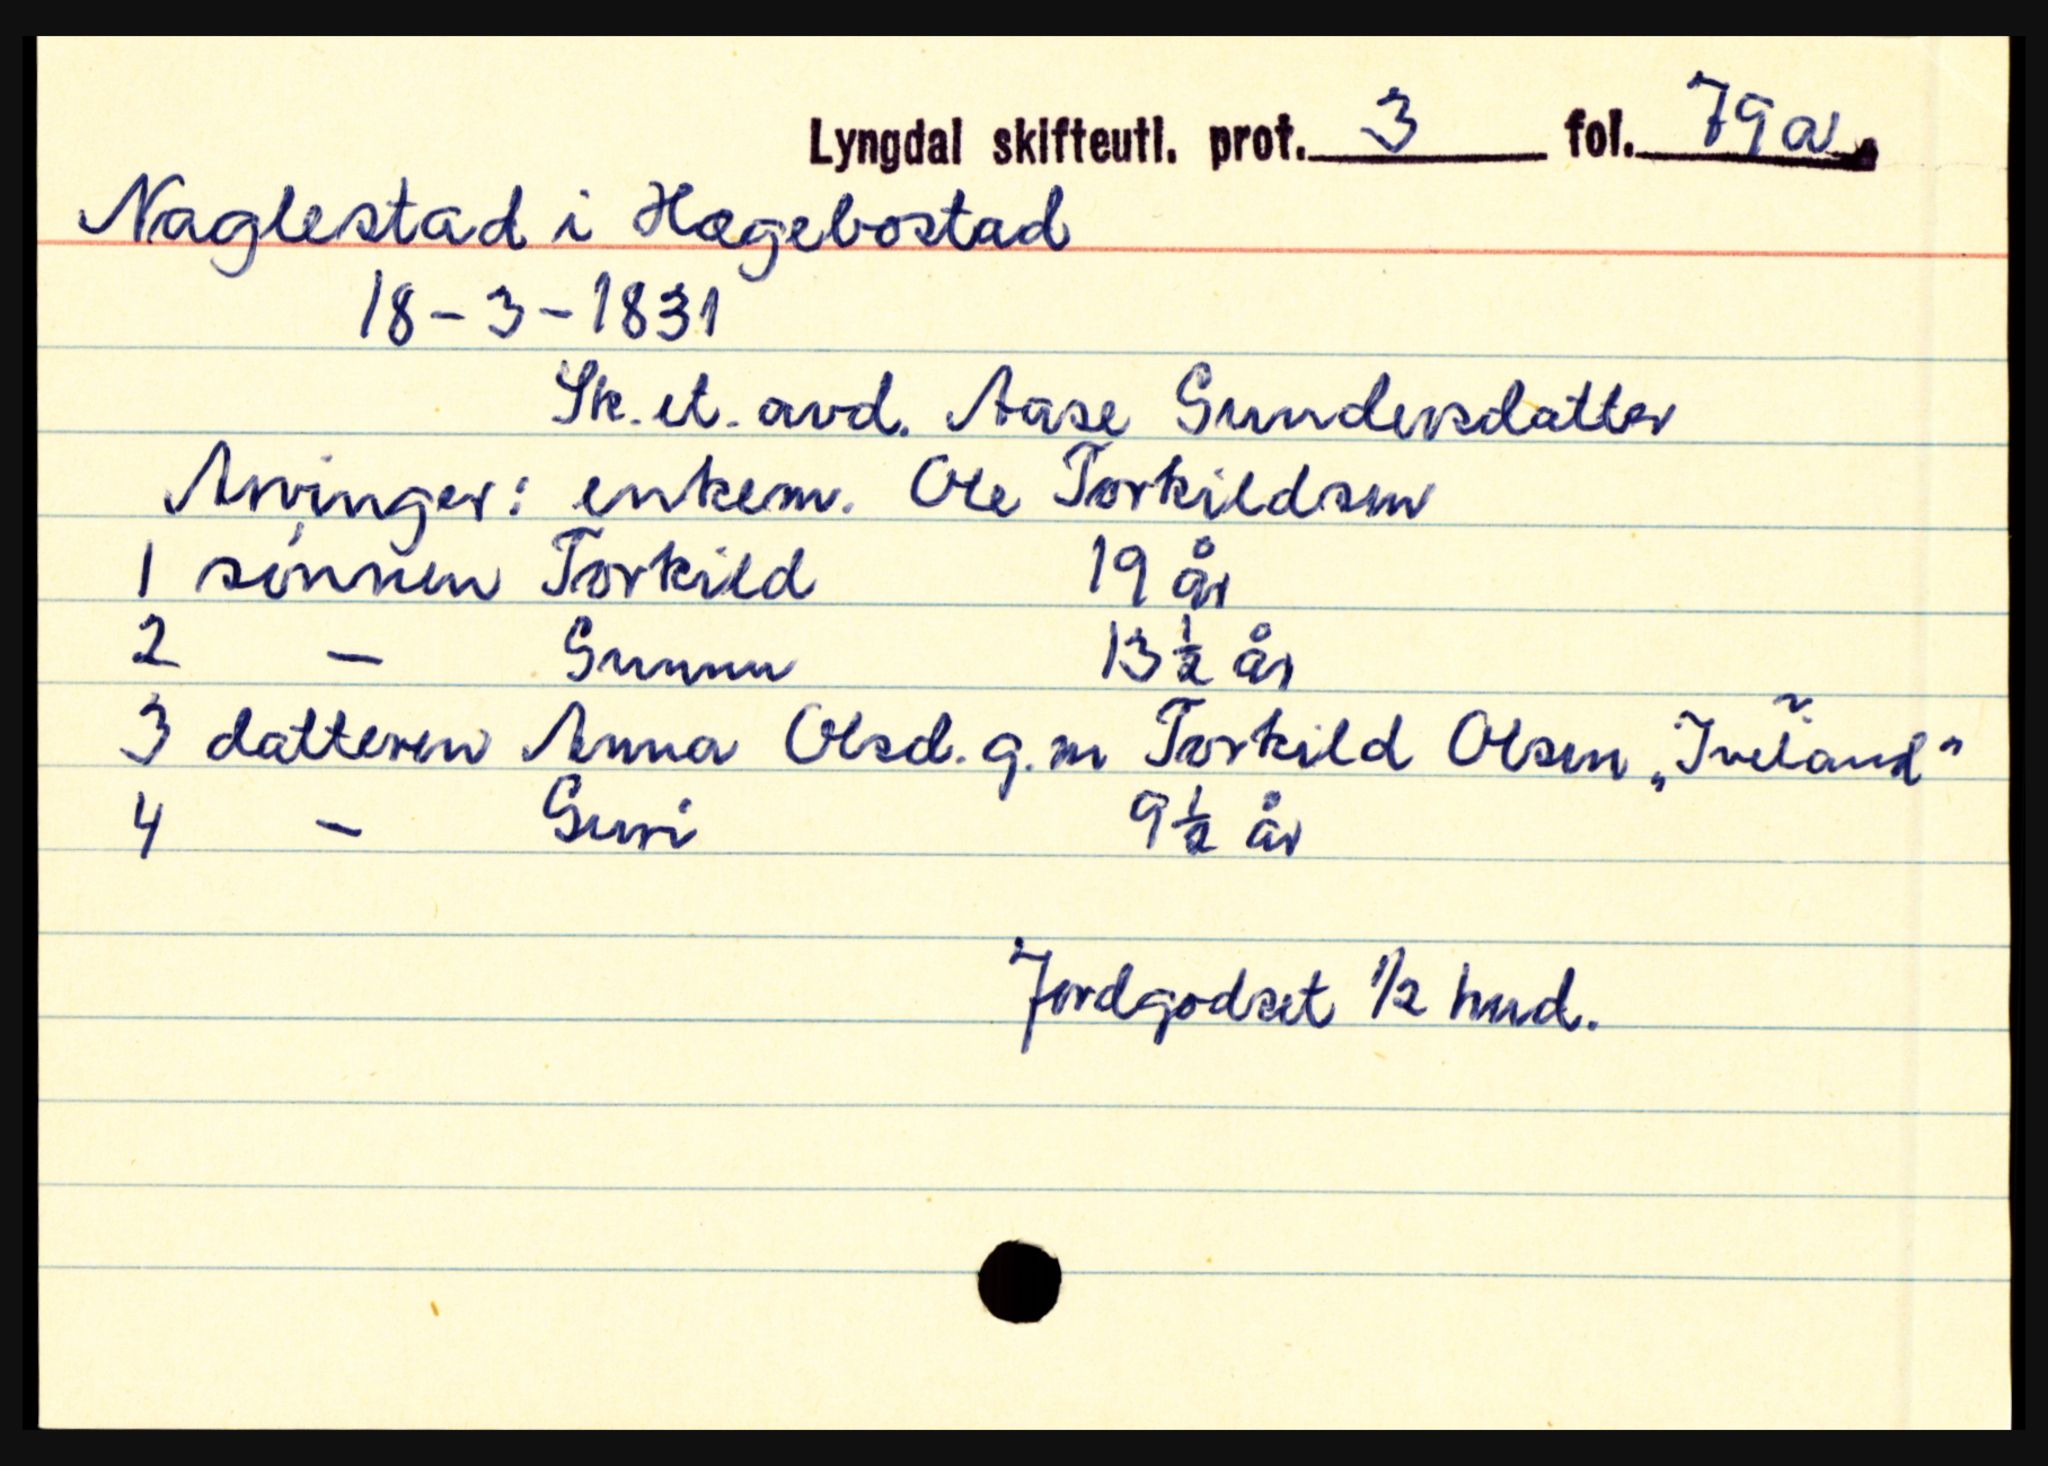 Lyngdal skifteutl. prot. 3 fol. 79a.
Naglestad i Hægebostad
18-3-1831
Sk. et. avd. Aase Gundersdatter
Arvinger: enkem. Ole Torkildsen
1 sønnen Torkild 19 år
2 — Gunnu 13 ½ år
3 datteren Anna Olsd. g. m Torkild Olsen „Iveland"
4 — Guri 9 ½ år
Jordgodset 1/2 hud.